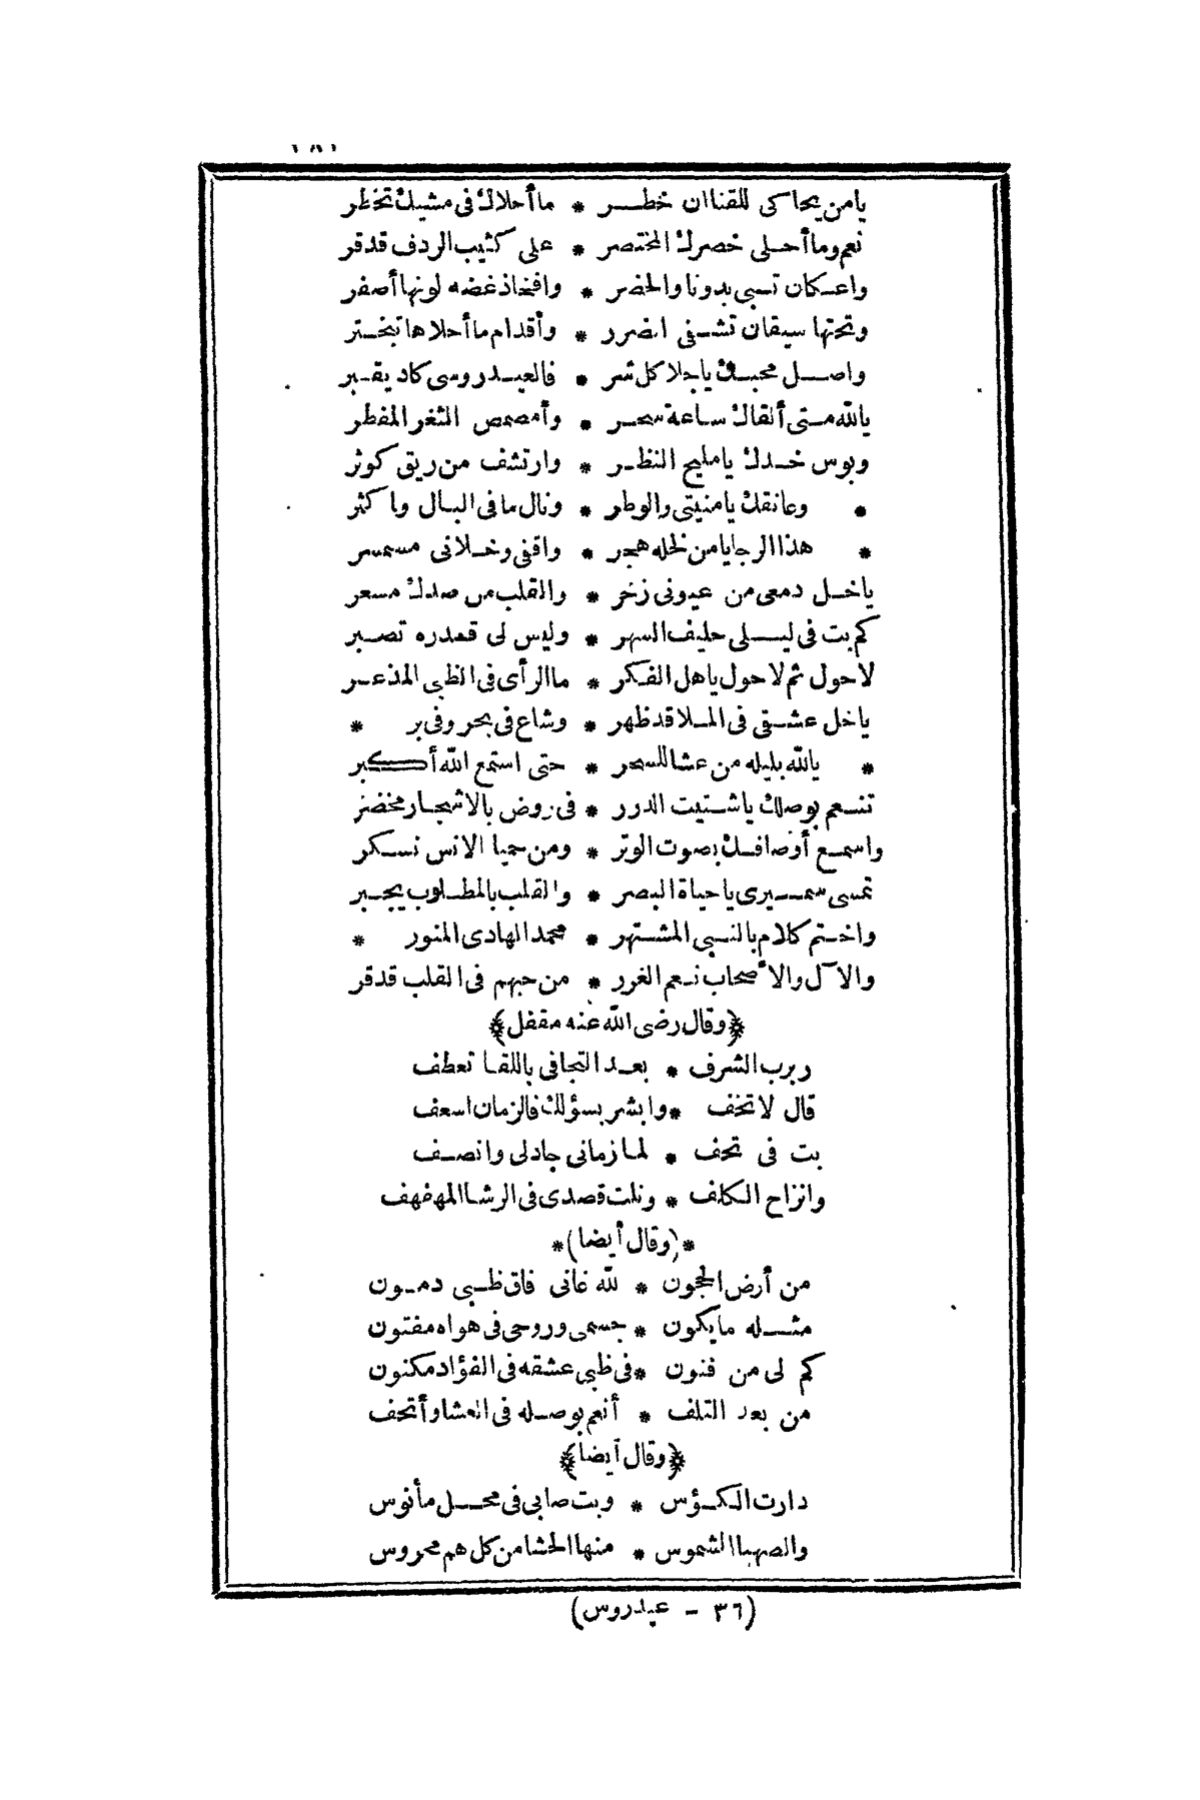 يا من يحاكى للقنا ان خطر * ما أحلاك فى مشيك تخطر
نعم وما أحلى خصرك المختصر * على كثيب الردف قد قر
واعكان تسبى بدونا والحضر * وافخاذ غضه لونها أصفر
وتحتها سيقان تشفى الضرر * وأقدام ما أحلاها تبختر
واصل محبك يا جلا كل شر * فالعيدروسى كاد يقبر
يالله متى ألقاك ساعة سحر * وأمصمص الثغر المفطر
وبوس خدك يا مليح النظر * وارتشف من ريق كوثر
* وعانقك يا منيتى والوطر * ونال ما فى البال واكثر
* هذا الرجا يا من نحله هجر * واقنى وخلانى مسمسر
يا خل دمعى من عيونى زخر * والقلب من صدك مسعر
كم بت فى ليلى حليف السهر * وليس لى قدره تصبر
لا حول ثم لا حول ياهل الفكر * ما الرأى فى الظبى المذعر
يا خل عشقى فى الملا قد ظهر * وشاع فى بحر وفى بر *
* يالله بليله من عشا للسحر * حتى استمع الله أكبر
تنعم بوصلك يا شتيت الدرر * فى روض بالاشجار مخضر
واسمع أوصافك بصوت الوتر * ومن حميا الانس نسكر
تمسى سميرى يا حياة البصر * والقلب بالمطلوب يجبر
واختم كلام بالنبى المشتهر * محمد الهادى المنور *
والآل والأصحاب نعم الغرر * من حبهم فى القلب قد قر
﴿وقال رضى الله عنه مقفل﴾
ربرب الشرف * بعد التجافى باللقا تعطف
قال لا تخف * وابشر بسؤلك فالزمان اسعف
بت فى تحف * لما زمانى جادلى وانصف
وانزاح الكلف * ونلت قصدى فى الرشا المهفهف
*(وقال أيضا)*
من أرض الحجون * لله غانى فاق ظبى دمون
مثله ما يكون * جسمى وروحى فى هواه مفتون
كم لى من فنون * فى ظبى عشقه فى الفؤاد مكنون
من بعد التلف * أنعم بوصله فى العشا وأتحف
﴿وقال أيضا﴾
دارت الكؤس * وبت صابى فى محل مأنوس
والصهبا الشموس * منها الحشا من كل هم محروس
(٣٦ - عيدروس)